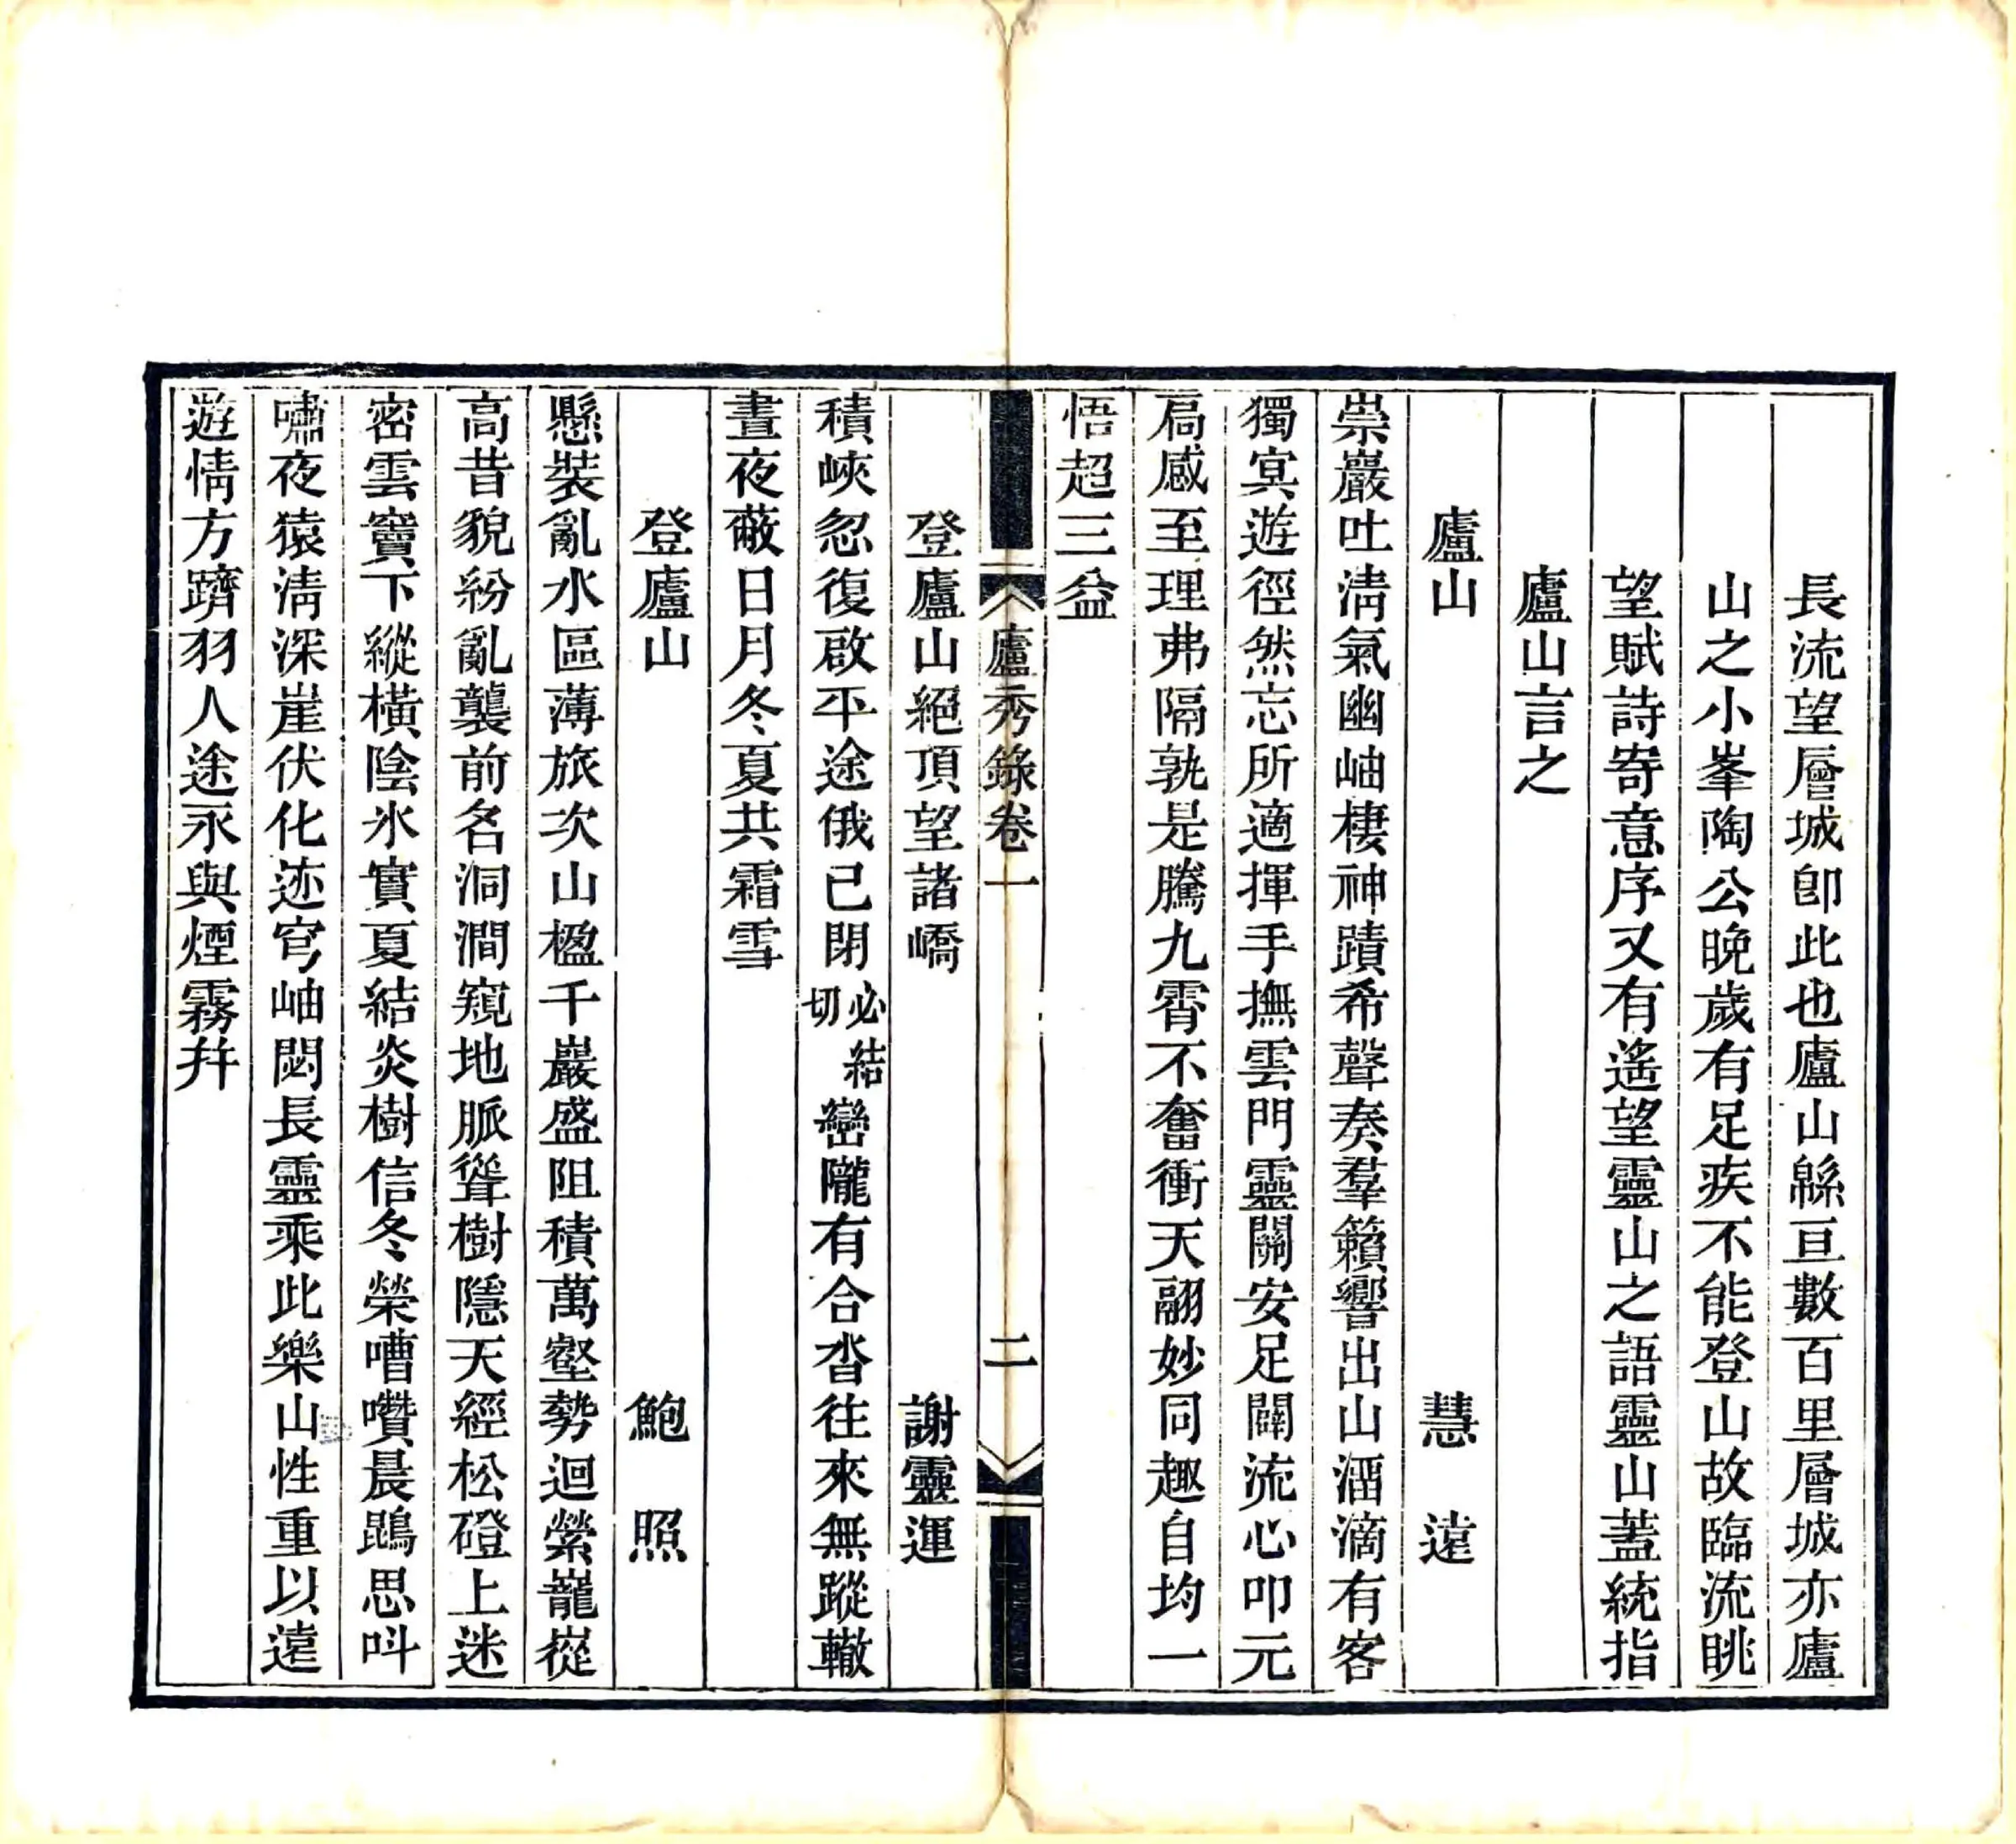 長流望層城卽此也廬山緜亘數百里層城亦廬
山之小峯陶公晚歲有足疾不能登山故臨流眺
望賦詩寄意序又有遙望靈山之語靈山蓋統指
廬山言之
廬山 慧遠
崇巖吐淸氣幽岫棲神蹟希聲奏羣籟響出山溜滴有客
獨冥遊徑然忘所適揮手撫雲門靈關安足闢流心叩元
扃感至理弗隔孰是騰九霄不奮衝天翮妙同趣自均一
悟超三益
廬秀錄卷一 二
登廬山絕頂望諸嶠 謝靈運
積峽忽復啟平途俄已閉必結切巒隴有合沓往來無蹤轍
晝夜蔽日月冬夏共霜雪
登廬山 鮑照
懸裝亂水區薄旅次山楹千巖盛阻積萬壑勢迴縈巃嵸
高昔貌紛亂襲前名洞澗窺地脈聳樹隱天經松磴上迷
密雲竇下縱橫陰氷實夏結炎樹信冬榮嘈囋晨鵾思叫
嘯夜猿淸深崖伏化迹穹岫閟長靈乘此樂山性重以遠
遊情方躋羽人途永與煙霧幷